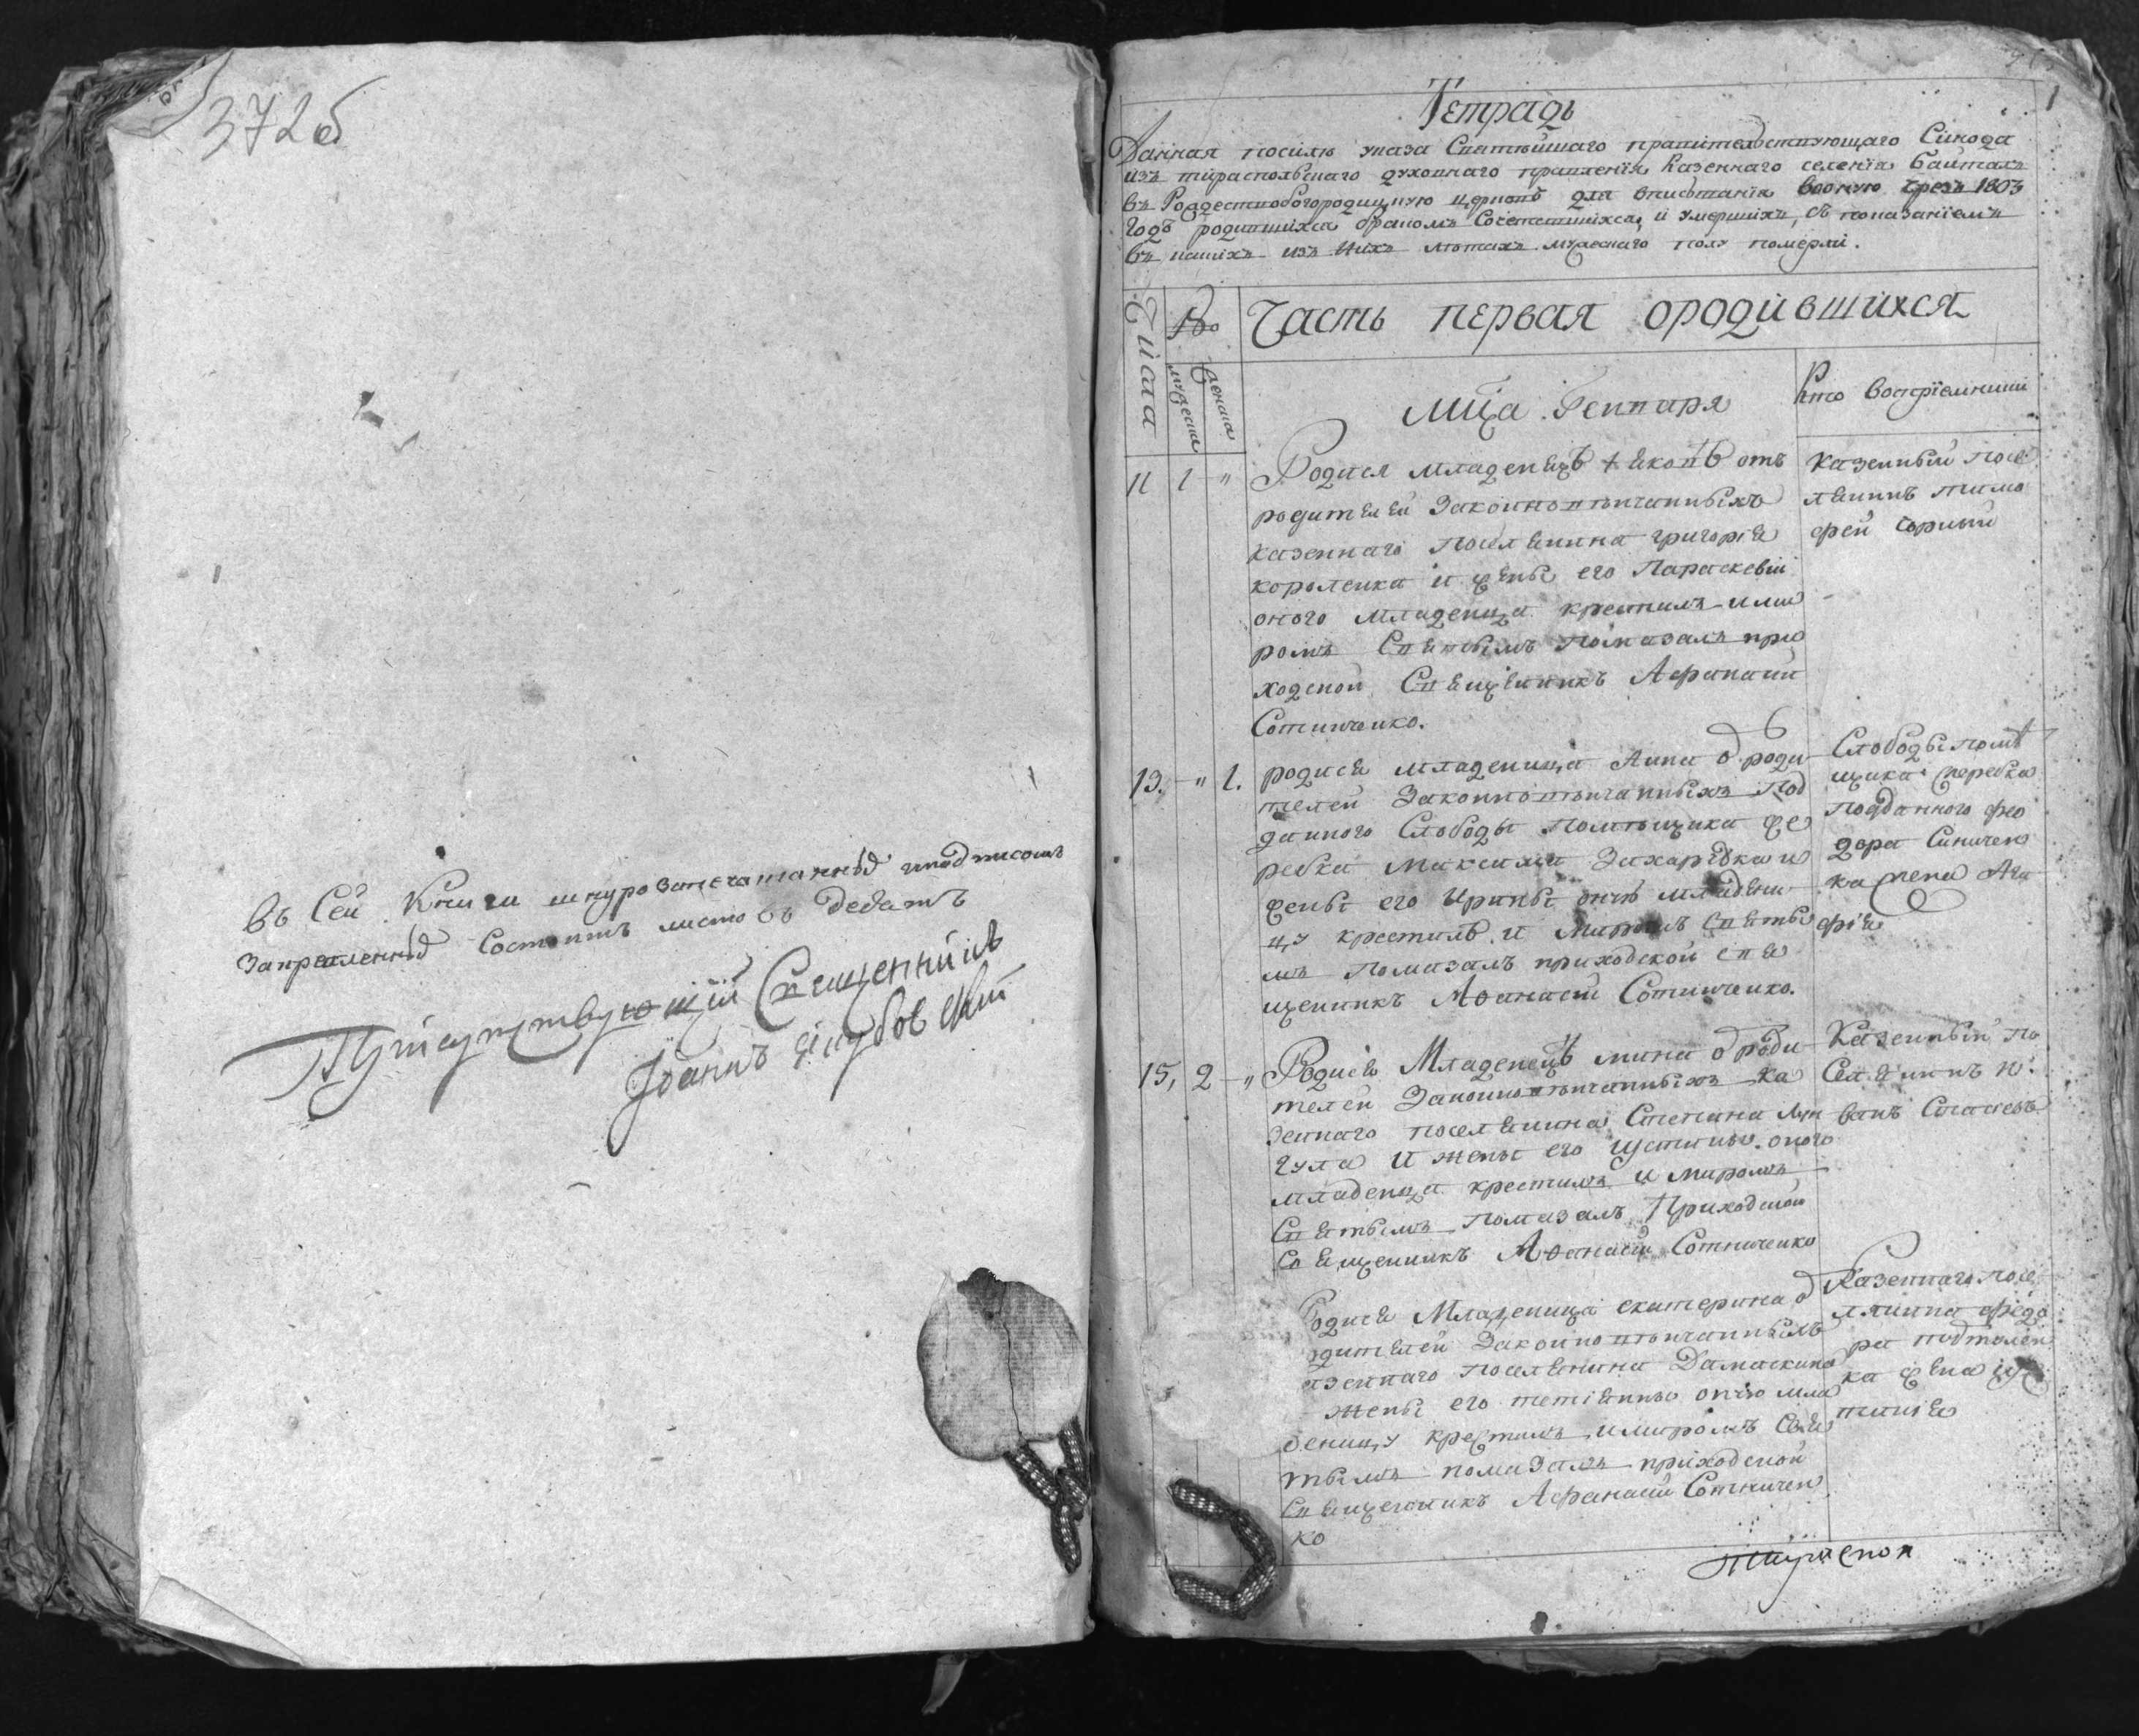 372об
въ Сей Книги шнурозапечатанной иподписомъ
Закрепленной Состоитъ листовъ девать
Присутствующій Священникъ
Іоаннъ
1
Тетрадь
Данная посилѣ указа Святѣйшаго правительствующаго Сѵнода
изъ тираспольскаго духовнаго правленія Казеннаго селенія Байталъ
въ Рождествобогородичную церковь для вписыванія вооную чрезъ 1803
годъ родившихся бракомъ Сочетавшихся, и умершихъ, съ показаніемъ
въ какихъ изъ нихъ лѣтахъ мужескаго полу померли.
Числа
Часть первая ородившихся
мужеска
женска
Мца Генваря
Кто воспріемники
11 1 "
Родися младенецъ Іяковъ отъ
родителей Законновѣнчанныхъ
казеннаго поселянина григорія
короленка и жены его Параскевіи
оного младенца крестилъ имѵ
ромъ Святымъ помазалъ при
ходской Священникъ Афанасій
Сотниченко.
казенный посе
лянинъ тимо
фей чорный
13. " 1.
родися младеница Анна ѿ роди
телей Законновѣнчанныхъ под
данного Слободы помѣщика же
ребка Максима Захарѣвка и
жены его Ирины оную младени
цу крестилъ и миромъ Святы
мъ помазалъ приходской свя
щенникъ Аѳанасій Сотниченко.
Слободы помѣ
щика жеребка
подданного фео
дора Синичен
ка жена Ага
фія
15, 2 "
Родися Младенецъ мина ѿ роди
телей Законновѣнчанныхъ ка
зеннаго поселянина Степана
гула и жены его Устины оного
младенца крестилъ и миромъ
Святымъ помазалъ Приходской
Священникъ Аѳанасій Сотниченко
Казенный по
селянинъ и
ванъ
Родися Младеница екатерина ѿ
родителей Законновѣнчанныхъ
казеннаго поселянина Дамаскина
жены его тетіянны оную мла
деницу крестилъ имиромъ Свя
тымъ помазалъ приходской
Священникъ Афанасій Сотничен
ко
Казеннаго посе
лянина федо
ра
ка жена Ус
тинія